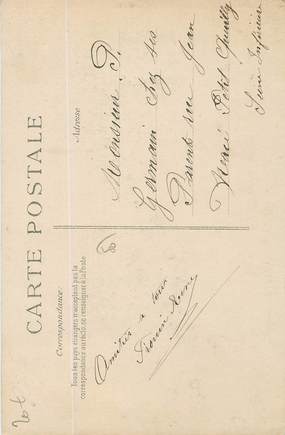 CARTE POSTALE
Correspondance
Tous les pays étrangers n'acceptent pas la
correspondance au recto, se renseigner à la Poste
Amitiés à tous
Adresse
Monsieur P.
Germain chez ses
Parents rue Jean
Petit Quevilly
Seine Inférieure